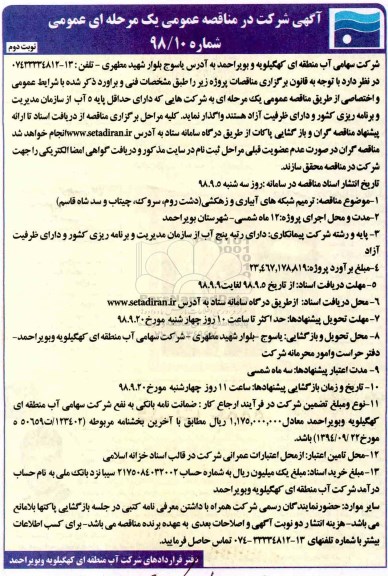 آگهی شرکت در مناقصه عمومی یک مرحله ای عمومی
شماره ۹۸/۱۰
نوبت دوم
شرکت سهامی آب منطقه ای کهگیلویه و بویراحمد به آدرس یاسوج بلوار شهید مطهری - تلفن : ۱۳-۰۷۴۳۳۳۳۴۸۱۲
در نظر دارد با توجه به قانون برگزاری مناقصات پروژه زیر را طبق مشخصات فنی و برآورد ذکر شده با شرایط عمومی
و اختصاصی از طریق مناقصه عمومی یک مرحله ای به شرکت هایی که دارای حداقل پایه ۵ آب از سازمان مدیریت
و برنامه ریزی کشور و دارای ظرفیت آزاد هستند واگذار نماید. کلیه مراحل برگزاری مناقصه از دریافت اسناد تا ارائه
پیشنهاد مناقصه گران و بازگشایی پاکات از طریق درگاه سامانه ستاد به آدرس www.setadiran.ir انجام خواهد شد
مناقصه گران در صورت عدم عضویت قبلی مراحل ثبت نام در سایت مذکور و دریافت گواهی امضا الکتریکی را جهت
شرکت در مناقصه محقق سازند.
تاریخ انتشار اسناد مناقصه در سامانه :روز سه شنبه ۹۸.۹.۵
۱-موضوع مناقصه: ترمیم شبکه های آبیاری و زهکشی (دشت روم، سروک، چیتاب و سد شاه قاسم)
۲-مدت و محل اجرای پروژه: ۱۲ ماه شمسی- شهرستان بویراحمد
۳- پایه و رشته شرکت پیمانکاری: دارای رتبه پنج آب از سازمان مدیریت و برنامه ریزی کشور و دارای ظرفیت
آزاد
۴-مبلغ برآورد پروژه: ۲۳,۴۶۷,۱۷۸,۸۱۹
۵- مهلت دریافت اسناد: از تاریخ ۹۸.۹.۵ لغایت ۹۸.۹.۹
۶- محل دریافت اسناد: ازطریق درگاه سامانه ستاد به آدرس www.setadiran.ir
۷- مهلت تحویل پیشنهادها: حداکثر تا ساعت ۱۰ روز چهارشنبه مورخ ۹۸.۹.۲۰
۸- محل تحویل و بازگشایی: یاسوج -بلوار شهید مطهری - شرکت سهامی آب منطقه ای کهگیلویه وبویراحمد-
دفتر حراست و امور محرمانه شرکت
۹- مدت اعتبار پیشنهادها: سه ماه شمسی
۱۰- تاریخ و زمان بازگشایی پیشنهادها: ساعت ۱۱ روز چهارشنبه مورخ ۹۸.۹.۲۰
۱۱-نوع ومبلغ تضمین شرکت در فرآیند ارجاع کار : ضمانت نامه بانکی به نفع شرکت سهامی آب منطقه ای
کهگیلویه وبویراحمد معادل ۱,۱۷۵,۰۰۰,۰۰۰ ریال مطابق با آخرین بخشنامه مربوطه (۱۲۳۴۰۲/ت۵۰۶۵۹ ه
مورخ ۱۳۹۴/۰۹/۲۲) باشد
۱۲-محل تامین اعتبار: ازمحل اعتبارات عمرانی شرکت در قالب اسناد خزانه اسلامی
۱۳- مبلغ خرید اسناد: مبلغ یک میلیون ریال به شماره حساب ۲۱۷۵۰۸۴۰۳۲۰۰۲ سیبا نزد بانک ملی به نام حساب
درآمد شرکت آب منطقه ای کهگیلویه وبویراحمد
سایر موارد: حضورنمایندگان رسمی شرکت همراه با داشتن معرفی نامه کتبی در جلسه بازگشایی پاکتها بلامانع
می باشد- هزینه انتشار دو نوبت آگهی و اصلاحات بعدی به عهده برنده مناقصه می باشد- برای کسب اطلاعات
بیشتر با شماره تلفنهای ۱۳-۳۳۳۳۴۸۱۲-۰۷۴ تماس حاصل فرمایید.
دفتر قراردادهای شرکت آب منطقه ای کهگیلویه وبویراحمد